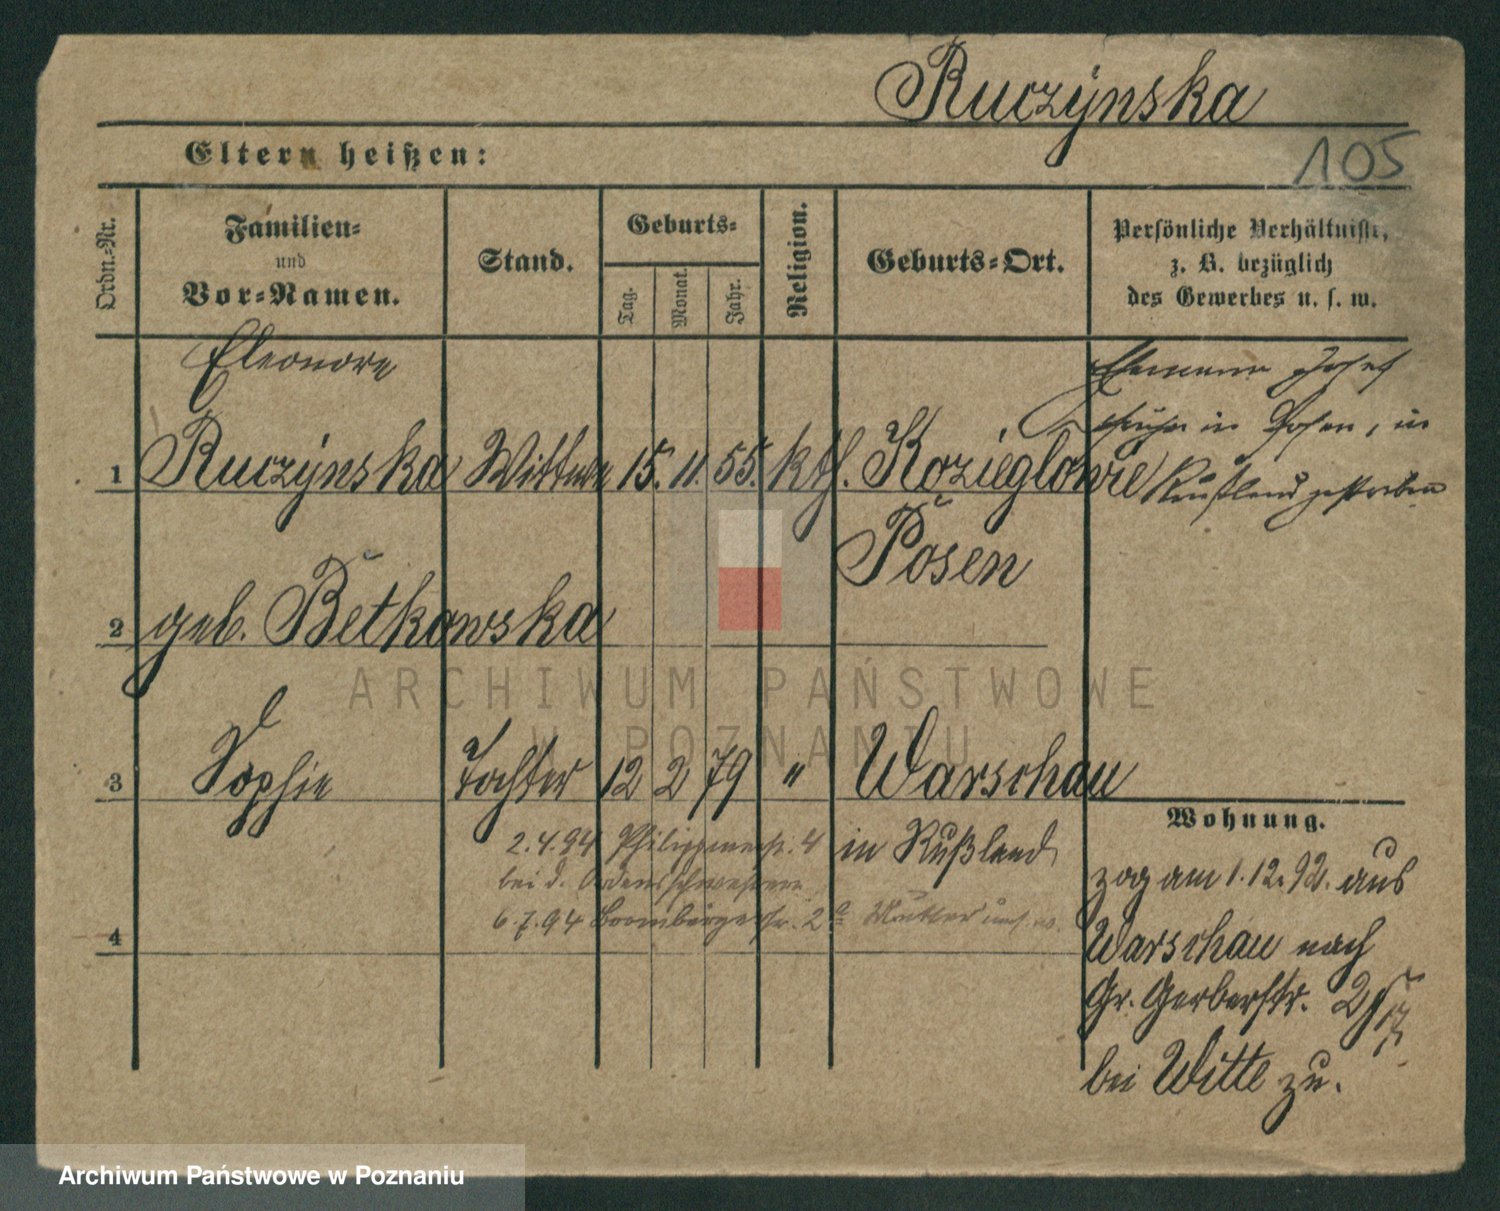 Ruczýnska
Eltern heißen:
105
Ordn.-Nr.
Familien-
und
Vor-Namen.
Stand.
Geburts-
Tag.
Monat.
Jahr.
Religion.
Geburts-Ort.
Persönliche Verhältnisse,
z. B. bezüglich
des Gewerbes u. s. w.
Eleonore
Ehemann Josef
in Posen, in
1 Ruczýnska Wittwe 15. 11. 55. kth. Kozieglowie
Rußland gestorben
Posen
2 geb. Betkowska
ARCHIWUM PAŃSTWOWE
W POZNANIU
3 Sophie Tochter 12 2 79 " Warschau
in Rußland
2.4.94 4
bei d. Ordensschwestern
6.7.94 2a Mutter
4
Wohnung.
zog am 1.12.92. aus
Warschau nach
Gr. Gerberstr.
bei Witte zu.
Archiwum Państwowe w Poznaniu